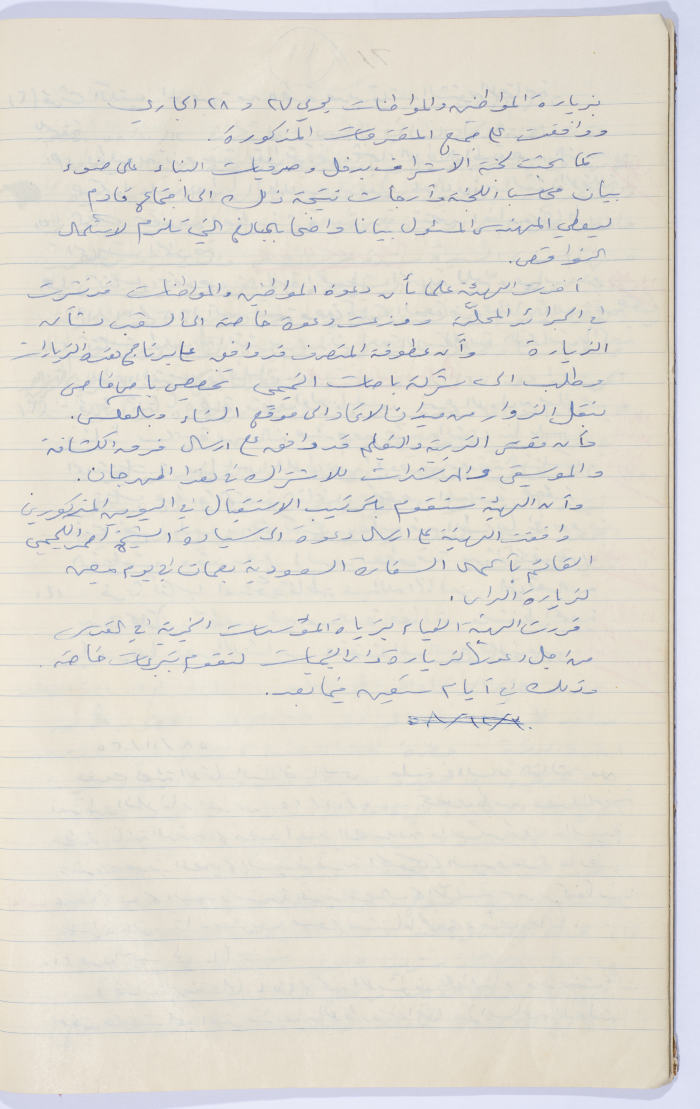 ٦١
بزيارة المواطنين والمواطنات يومي ٢٧ و ٢٨ الجاري
ووافقت على جميع المقترحات المذكورة.
كما بحثت لجنة الاشراف بدخل وصرفيات البناء على ضوء
بيان محاسب اللجنة وأرجأت نتيجة ذلك الى اجتماع قادم
ليعطي المهندس المسئول بيانا واضحا بالمبالغ التي تلزم لاستكمال
النواقص.
أخذت الهيئة علما بأن دعوة المواطنين والمواطنات قد نشرت
في الجرائد المحلية ووزعت دعوة خاصة الى الشعب بشأن
الزيارة وأن عطوفة المتصرف قد وافق على برنامج هذه الزيارات
وطلب الى شركة باصات التميمي تخصيص باص خاص
بنقل الزوار من ميدان الاتحاد الى موقع البناء وبالعكس.
كما أن مفتش التربية والتعليم قد وافق على ارسال فرقة الكشافة
والموسيقى والمرشدات للاشتراك في هذا المهرجان.
وأن الهيئة ستقوم بترتيب الاستقبال في اليومين المذكورين
وافقت الهيئة على ارسال دعوة الى سيادة الشيخ احمد
القائم بأعمال السفارة السعودية بعمان في يوم معين
لزيارة الدار.
قررت الهيئة القيام بزيارة المؤسسات الخيرية في القدس
من اجل دعوتها لزيارة دار اليتيمات لتقوم بتبرعات خاصة
وذلك في أيام ستعين فيما بعد.